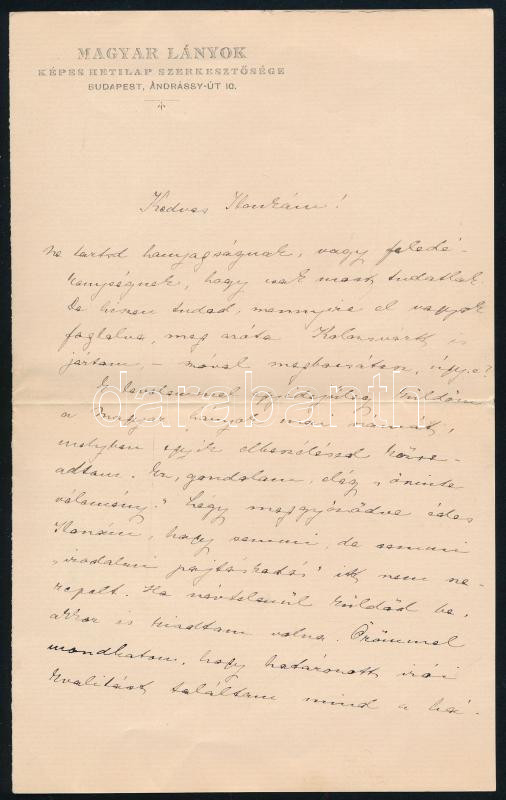 MAGYAR LÁNYOK
KÉPES HETILAP SZERKESZTŐSÉGE
BUDAPEST, ANDRÁSSY-ÚT 10.
Kedves Ilonkám!
Ne tartsd hanyagságnak, vagy feledé-
kenységnek, hogy csak most tudatlak.
De hiszen tudod, mennyire el vagyok
foglalva, meg aztán Kolozsvárt is
jártam, – szóval megbocsátasz, úgy-e?
E levelemmel egyidejűleg küldöm
a Magyar Lányok mai számát,
melyben egyik elbeszélésed közre-
adtam. Ez, gondolom, elég "őszinte
vélemény." Légy meggyőződve édes
Ilonkám, hogy semmi, de semmi
"irodalmi pajtáskodás" itt nem sze-
repelt. Ha névtelenül küldöd be,
akkor is kiadtam volna. Örömmel
mondhatom, hogy határozott irói
kvalitást találtam mind a
darabanth